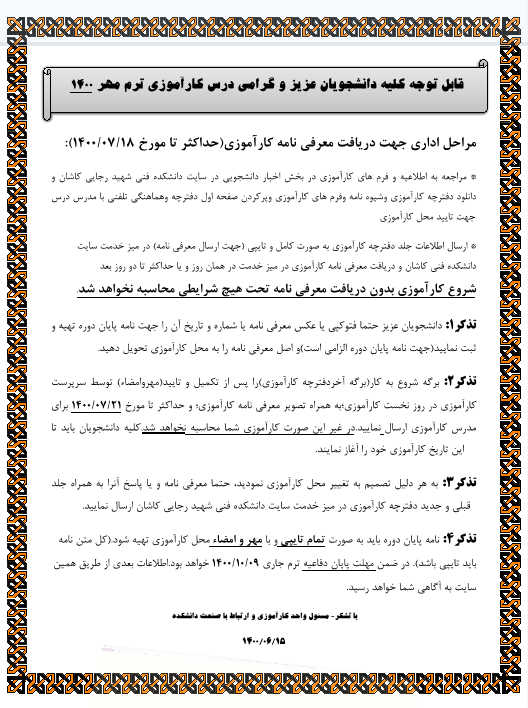 قابل توجه کلیه دانشجویان عزیز و گرامی درس کارآموزی ترم مهر ۱۴۰۰
مراحل اداری جهت دریافت معرفی نامه کارآموزی(حداکثر تا مورخ ۱۴۰۰/۰۷/۱۸):
* مراجعه به اطلاعیه و فرم های کارآموزی در بخش اخبار دانشجویی در سایت دانشکده فنی شهید رجایی کاشان و
دانلود دفترچه کارآموزی وشیوه نامه وفرم های کارآموزی وپرکردن صفحه اول دفترچه وهماهنگی تلفنی با مدرس درس
جهت تایید محل کارآموزی
* ارسال اطلاعات جلد دفترچه کارآموزی به صورت کامل و تایپی (جهت ارسال معرفی نامه) در میز خدمت سایت
دانشکده فنی کاشان و دریافت معرفی نامه کارآموزی در میز خدمت در همان روز و یا حداکثر تا دو روز بعد
شروع کارآموزی بدون دریافت معرفی نامه تحت هیچ شرایطی محاسبه نخواهد شد.
تذکر۱: دانشجویان عزیز حتما فتوکپی یا عکس معرفی نامه یا شماره و تاریخ آن را جهت نامه پایان دوره تهیه و
ثبت نمایید(جهت نامه پایان دوره الزامی است)و اصل معرفی نامه را به محل کارآموزی تحویل دهید.
تذکر۲: برگه شروع به کار(برگه آخردفترچه کارآموزی)را پس از تکمیل و تایید(مهروامضاء) توسط سرپرست
کارآموزی در روز نخست کارآموزی؛به همراه تصویر معرفی نامه کارآموزی؛ و حداکثر تا مورخ ۱۴۰۰/۰۷/۲۱ برای
مدرس کارآموزی ارسال نمایید.در غیر این صورت کارآموزی شما محاسبه نخواهد شد.کلیه دانشجویان باید تا
این تاریخ کارآموزی خود را آغاز نمایند.
تذکر۳: به هر دلیل تصمیم به تغییر محل کارآموزی نمودید، حتما معرفی نامه و یا پاسخ آنرا به همراه جلد
قبلی و جدید دفترچه کارآموزی در میز خدمت سایت دانشکده فنی شهید رجایی کاشان ارسال نمایید.
تذکر۴: نامه پایان دوره باید به صورت تمام تایپی و با مهر و امضاء محل کارآموزی تهیه شود.(کل متن نامه
باید تایپی باشد). در ضمن مهلت پایان دفاعیه ترم جاری ۱۴۰۰/۱۰/۰۹ خواهد بود.اطلاعات بعدی از طریق همین
سایت به آگاهی شما خواهد رسید.
با تشکر- مسئول واحد کارآموزی و ارتباط با صنعت دانشکده
۱۴۰۰/۰۶/۱۵